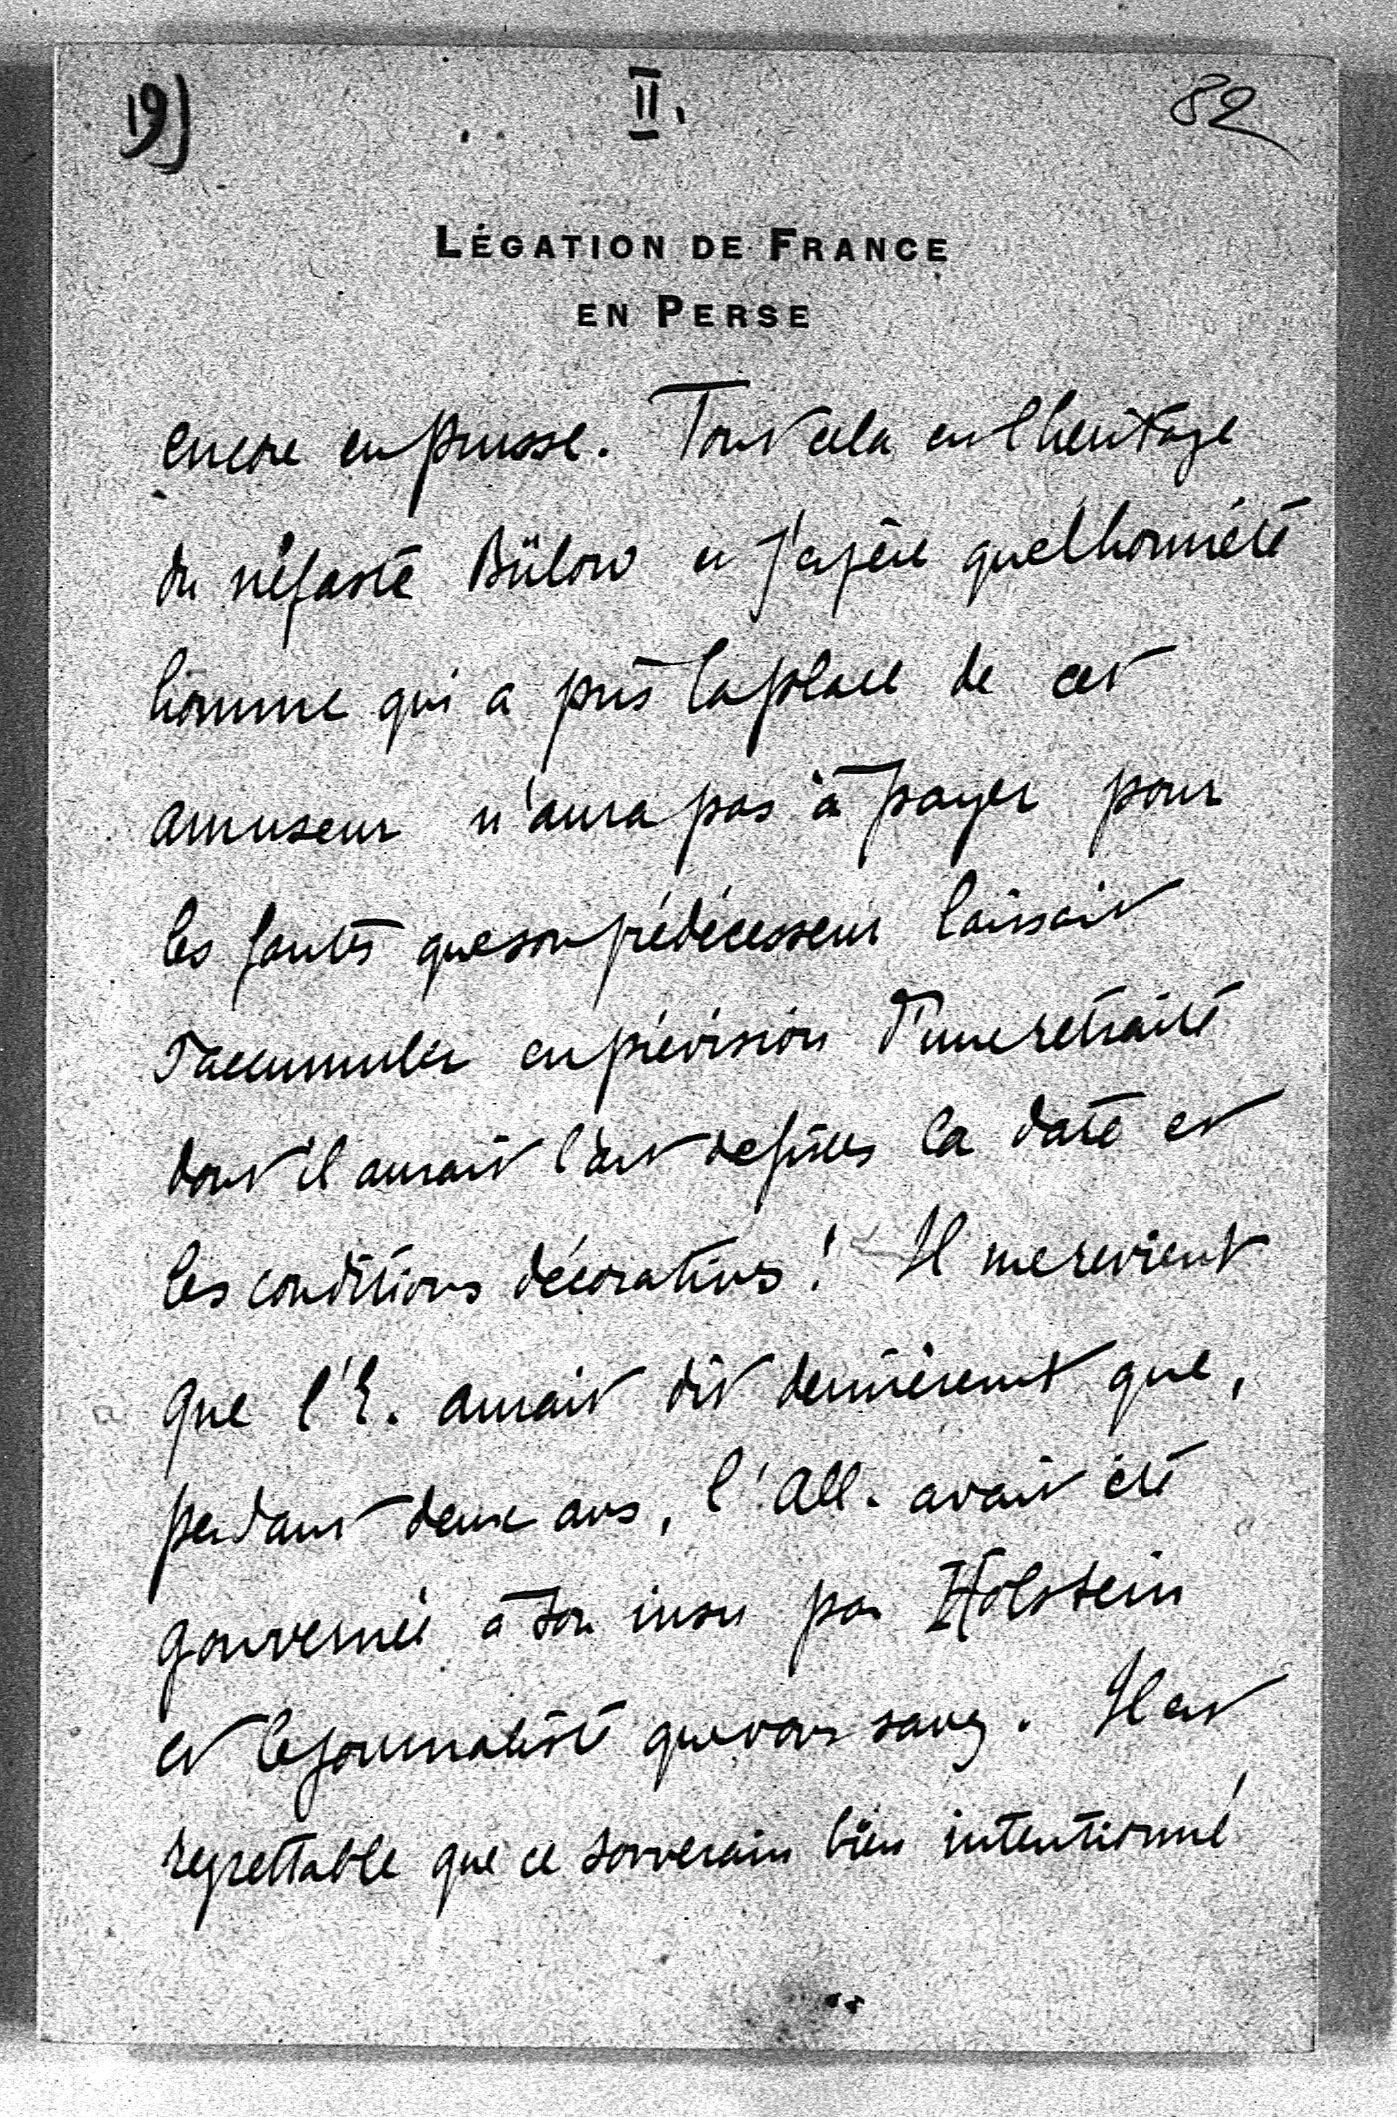 19) II. 82
LÉGATION DE FRANCE
EN PERSE
encore en Prusse. Tout cela est l'héritage
du néfaste Bülow et j'espère que l'honnête
homme qui a pris la place de cet
amuseur n'aura pas à payer pour
les fautes que son prédécesseur laissait
s'accumuler en prévision d'une retraite
dont il aurait l'art de fixer la date et
les conditions décoratives! Il me revient
que l'E. aurait dit dernièrement que,
pendant deux ans, l'All. avait été
gouvernée à son insu par Holstein
et le journaliste que vous savez. Il est
regrettable que ce souverain bien intentionné